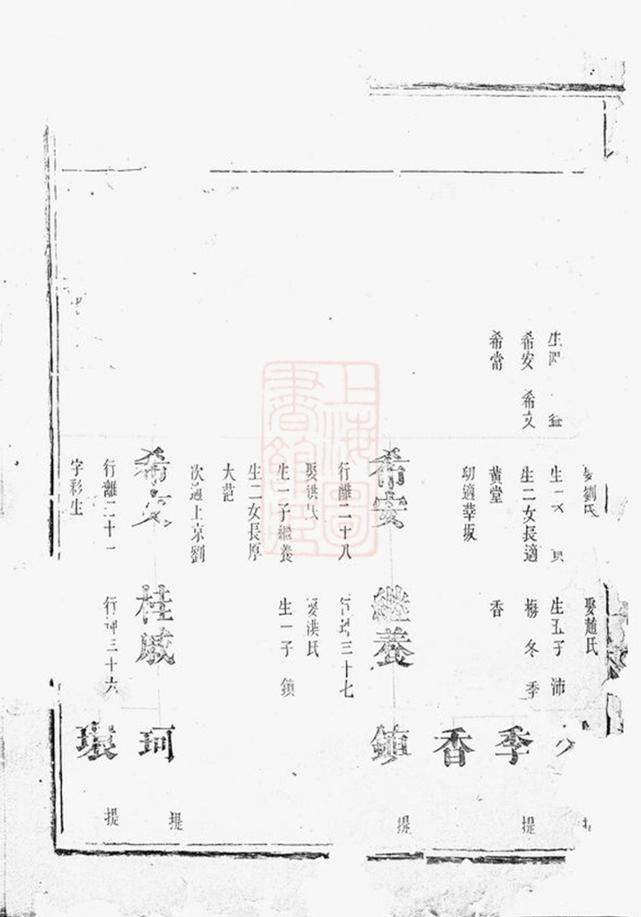 希安 希文
希當
劉氏
生二女長適
黃堂
㓜適華坂
希安
行離二十八
娶洪氏
生一子繼養
生二女長厚
大范
次適上京劉
希文
行離二十一
字彩生
娶趙氏
生五子沛
梅冬季
香
繼養
三十七
娶洪氏
生一子鎮
桂
行坤三十六
季
提
香
鎮
提
珂
提
環
提
上海圖書館藏